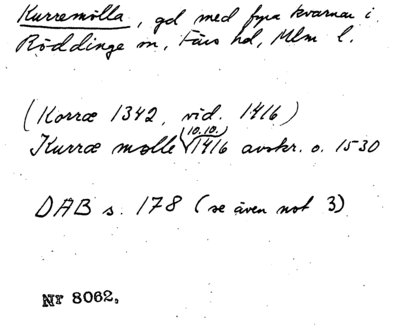 Kurremölla, gd med fyra kvarnar i
Röddinge sn, Färs hd, Mlm l.
(Korræ 1342, vid. 1416)
Kurræ mølle (10.10.) 1416 avskr. o. 1530
DAB s. 178 (se även not 3)
Nr 8062,